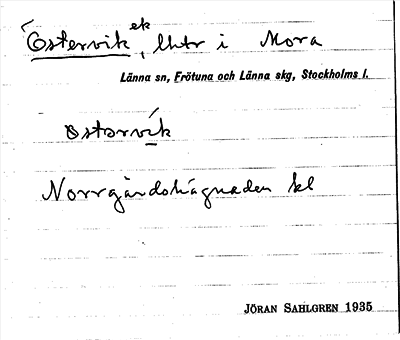 Östervik ek, lht i Mora
Länna sn, Frötuna och Länna skg, Stockholms l.
ostərvík
Norrgårdshägnaden kl
JÖRAN SAHLGREN 1935